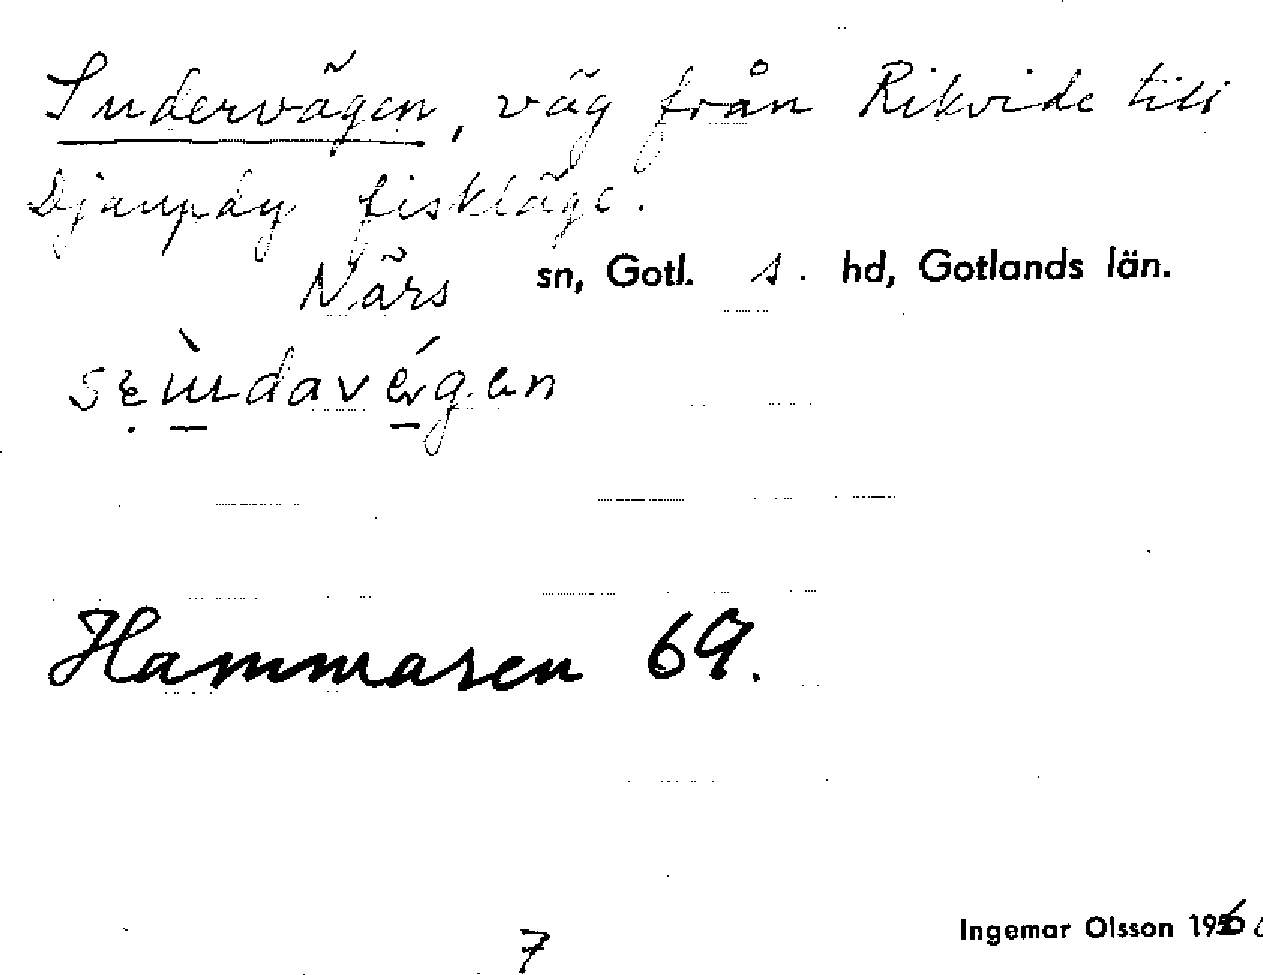 Sudervägen, väg från Rikvide till
Djaupdy fiskläge.
Närs sn, Gotl. s. hd, Gotlands län.
Hammaren 69.
7
Ingemar Olsson 196